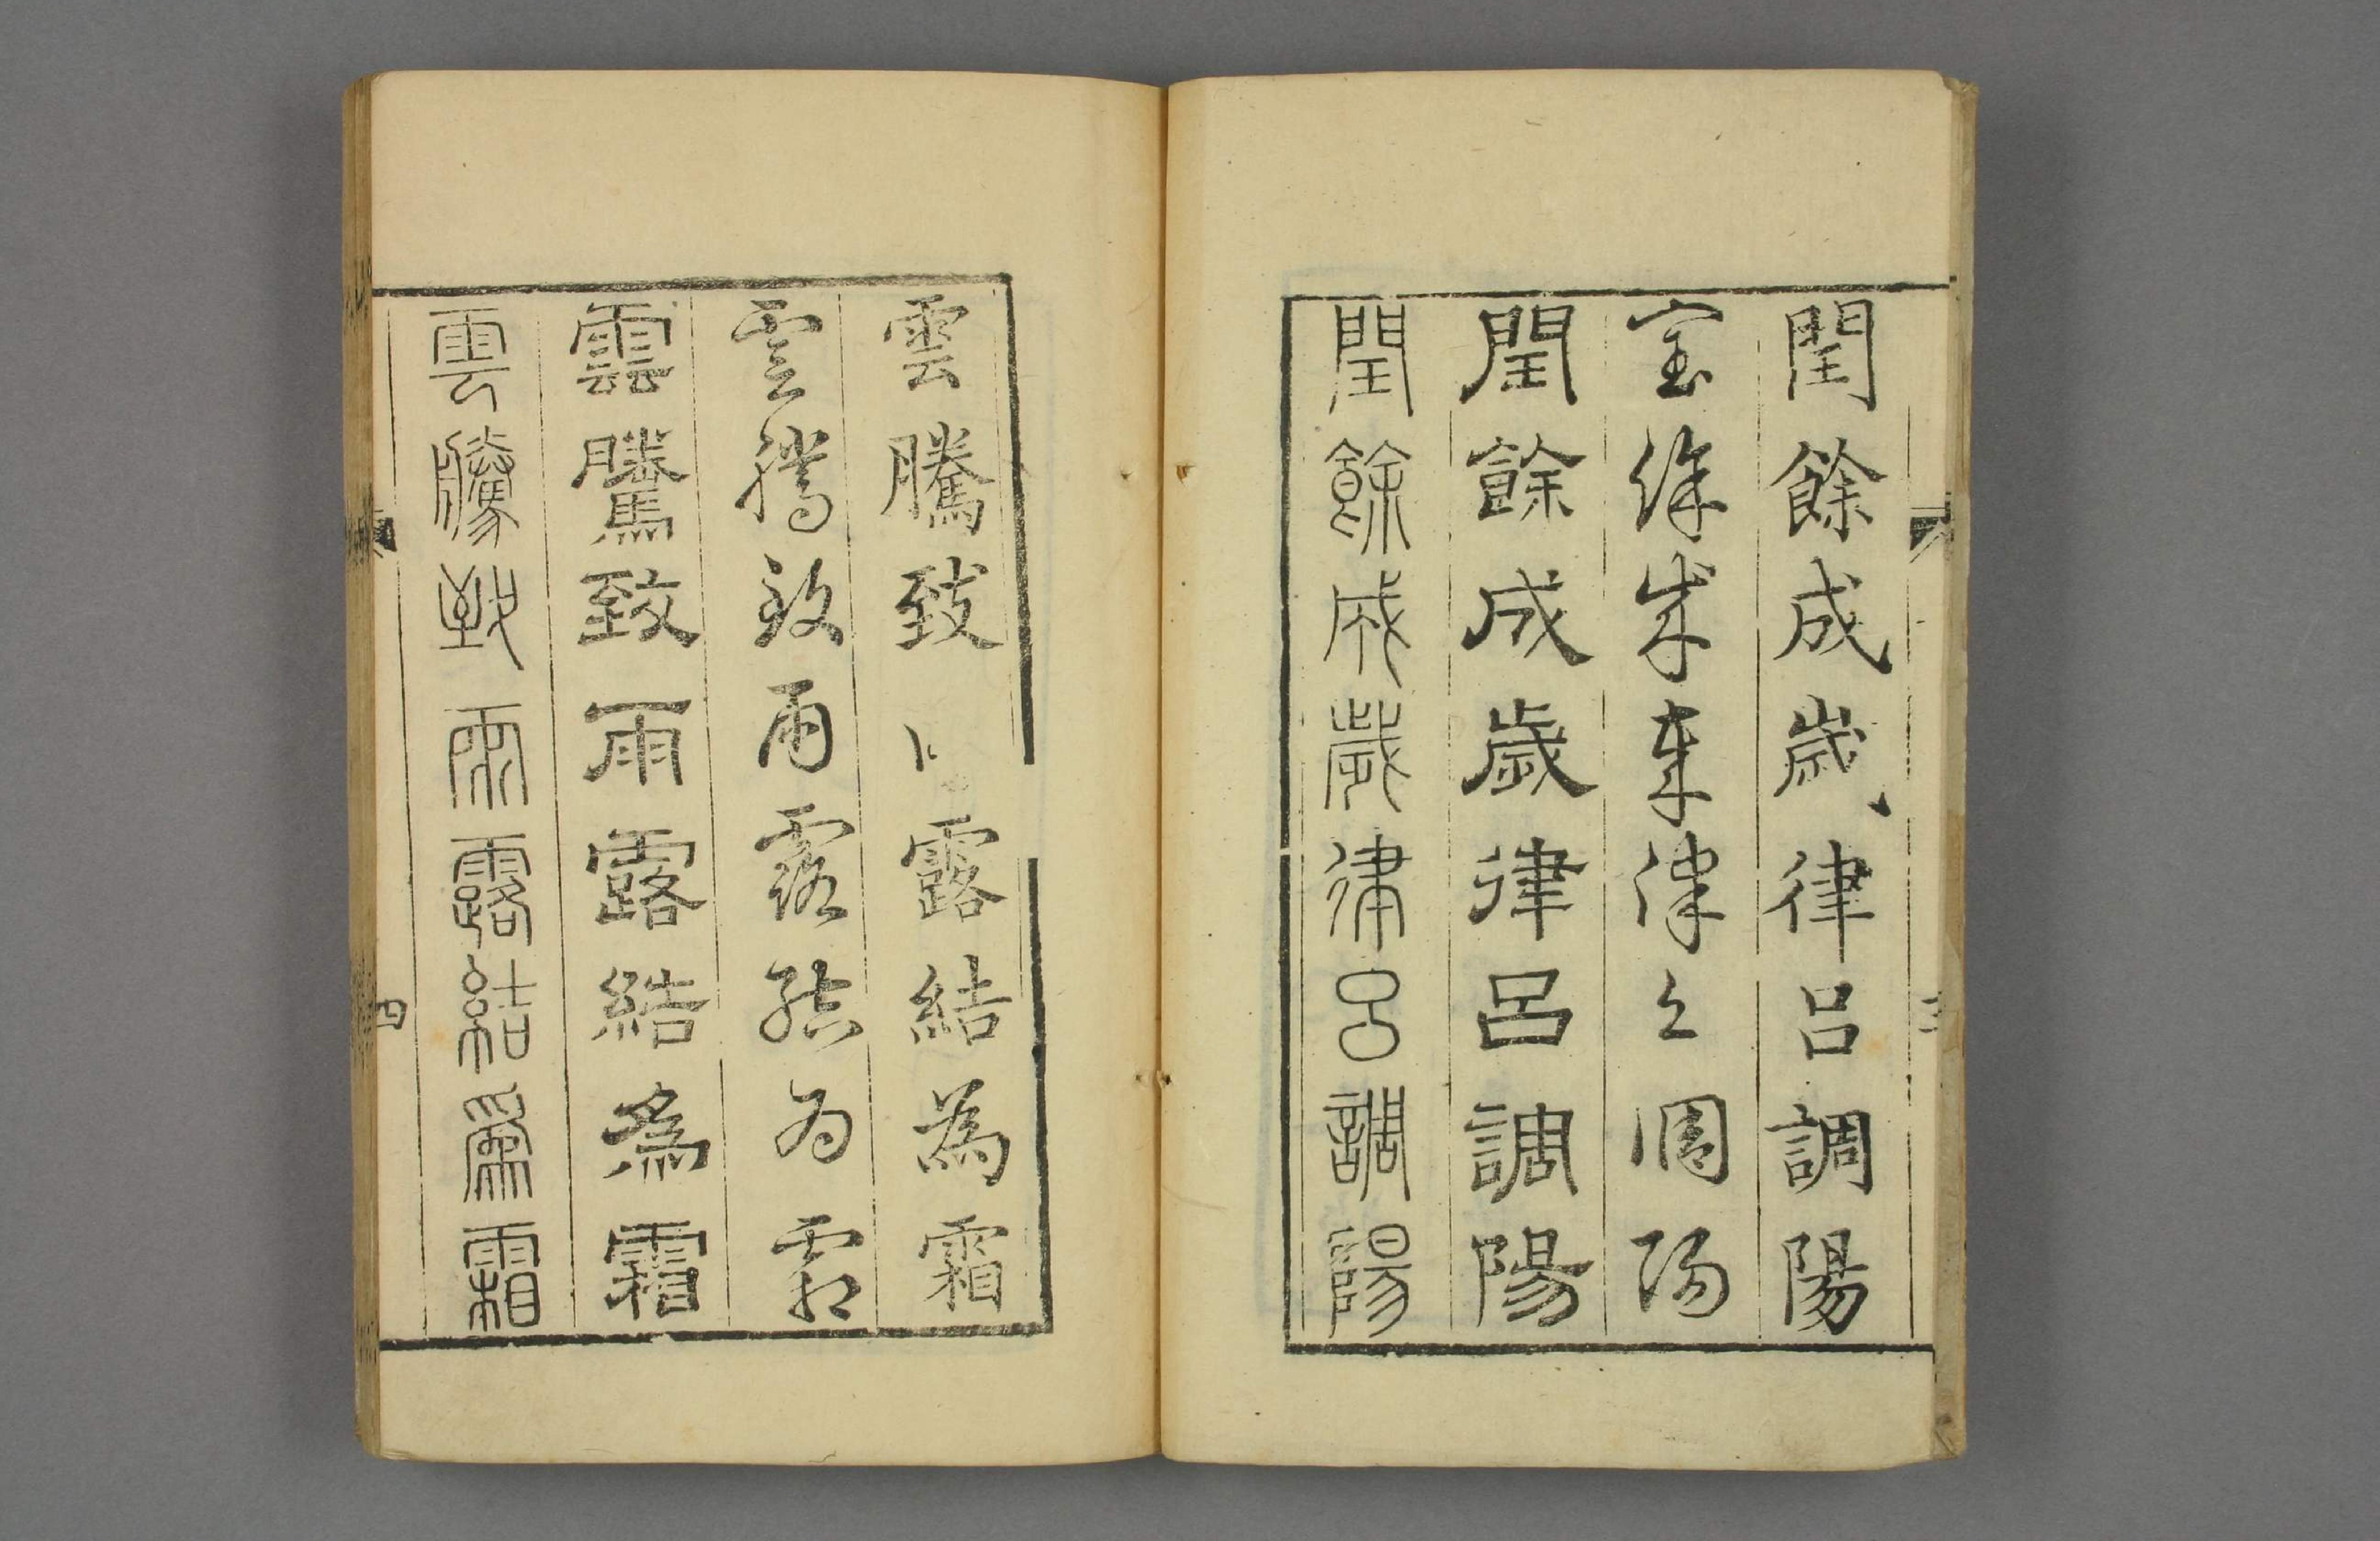 閏餘成歲律呂調陽
閏餘成歲律呂調陽
閏餘成歲律呂調陽
閏餘成歲律呂調陽
雲騰致露結為霜
雲騰致雨露結為霜
雲騰致雨露結為霜
雲騰致雨露結爲霜
四